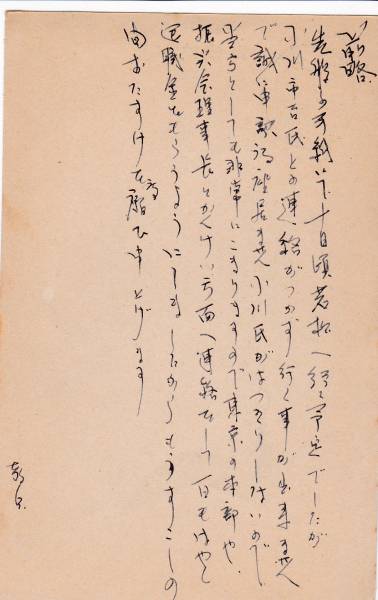 前略
先般の手紙にて十日頃若松へ行く予定でしたが
小川市吉氏との連絡がつかず行く事が出来ません
で誠に申訳御座居ません 小川氏がはっきりしないので
当方としても非常にこまりますので東京の本部や
振興会理事長とかけい方面へ連絡をして一日もはやく
退職金をもらうようにしましたからもうすこしの
間おたすけを御願ひ申上げます